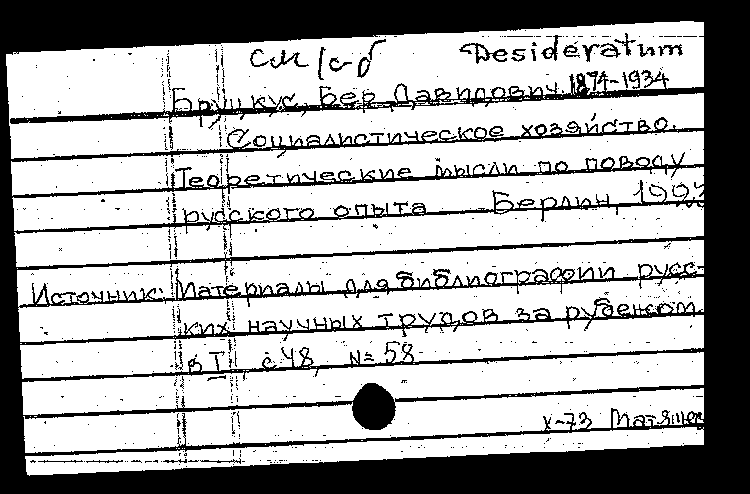 см/с-б Desideratum
Бруцкус, Бер Давидович. 1874-1934
Социалистическое хозяйство.
Теоретические мысли по поводу
русского опыта Берлин,
Источник: Материалы для библиографии русс-
ких научных трудов за рубежом.
в I, с 48, № 58
X-73